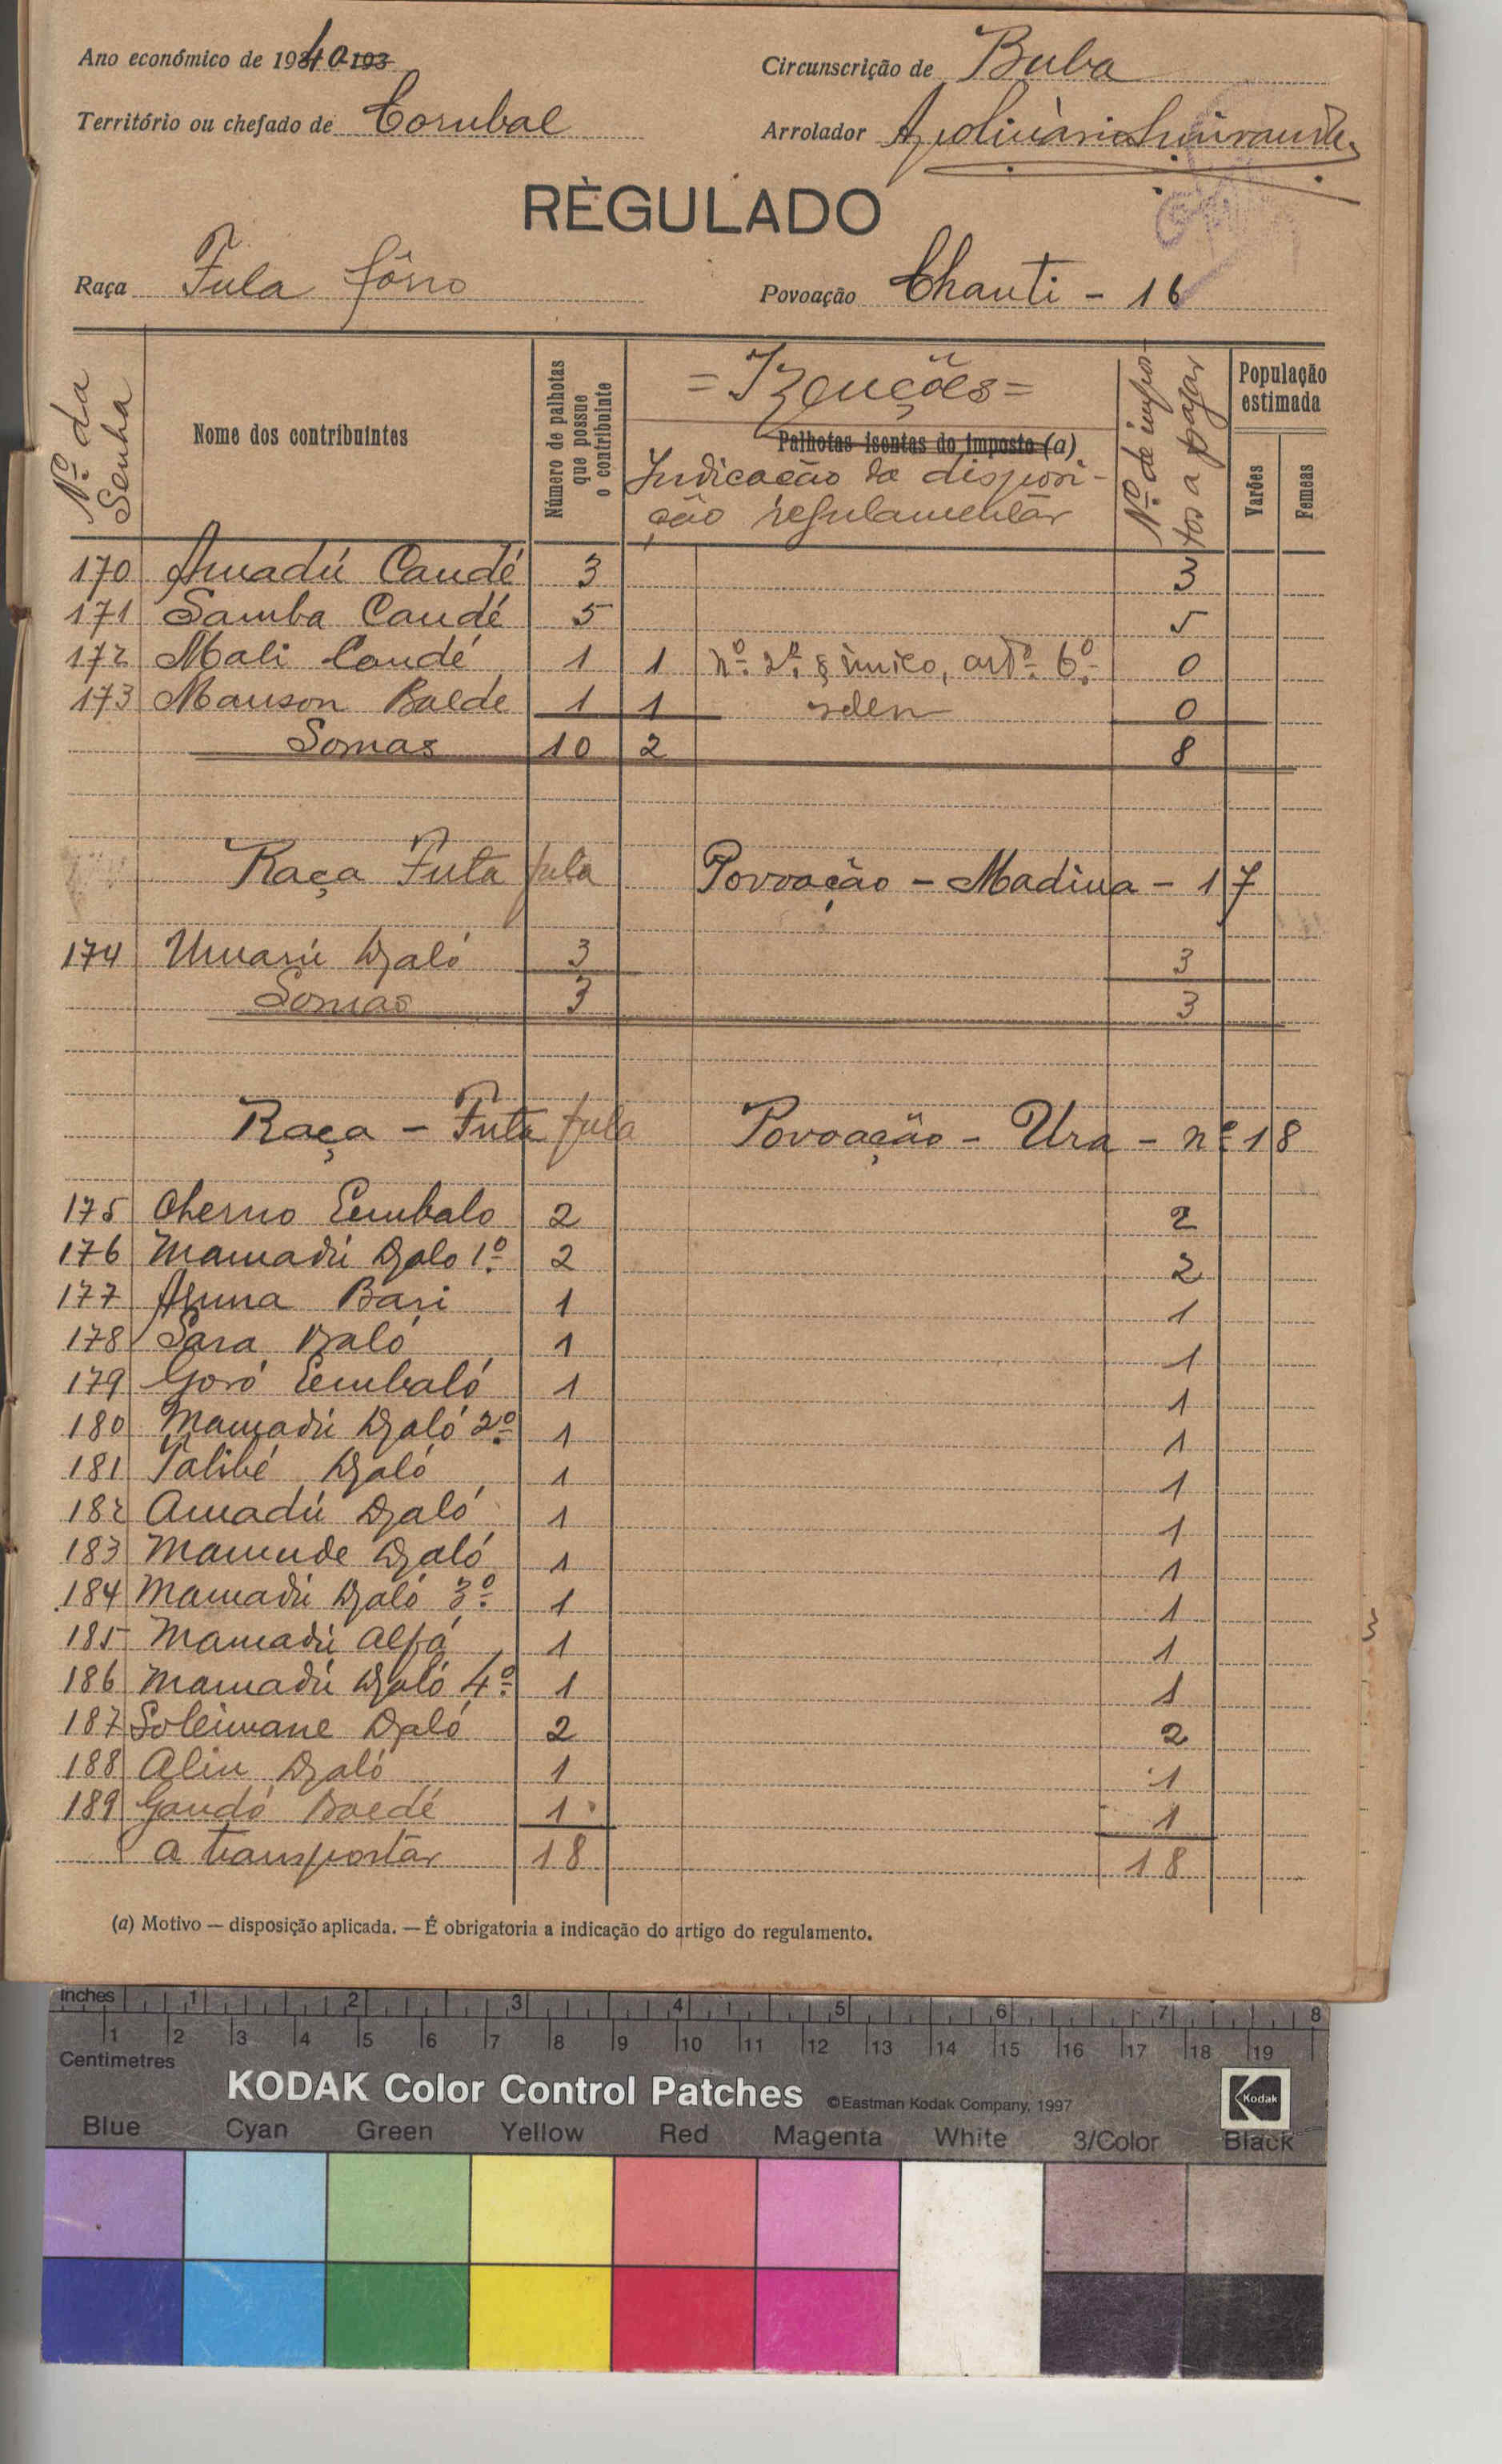 Ano económico de 1940-193
Circunscrição de Buba
Território ou chefado de Corubal
Arrolador
RÈGULADO
Raça Fula fôrro
Povoação Chanti - 16
Nº da Senha
Nome dos contribuintes
Número de palhotas que possue o contribuinte
= Izenções =
Palhotas isentas do imposto (a)
Indicação da disposi-
ção regulamentar
Nº de impos-
tos a pagar
População estimada
Varões
Femeas
170 Amadú Candé 3 3
171 Samba Candé 5 5
172 Mali Candé 1 1 nº 2º § único, artº 6º 0
173 Mauson Balde 1 1 iden 0
Somas 10 2 8
Raça Futa fula Povoação - Madina - 17
174 Umarú Djaló 3 3
Somas 3 3
Raça - Futa fula Povoação - Ura - nº 18
175 Cherno Embalo 2 2
176 Mamadú Djalo 1º 2 2
177 Aruna Bari 1 1
178 Sara Djaló 1 1
179 Goró Embaló 1 1
180 Mamadú Djaló 2º 1 1
181 Talibé Djaló 1 1
182 Amadú Djaló 1 1
183 Mamude Djaló 1 1
184 Mamadú Djaló 3º 1 1
185 Mamadú Alfá 1 1
186 Mamadú Djaló 4º 1 1
187 Soleimane Djaló 2 2
188 Aliu Djaló 1 1
189 Gandó Baldé 1 1
A transportar 18 18
(a) Motivo — disposição aplicada. — É obrigatoria a indicação do artigo do regulamento.
inches 1 2 3 4 5 6 7 8
1 2 3 4 5 6 7 8 9 10 11 12 13 14 15 16 17 18 19
Centimetres
KODAK Color Control Patches ©Eastman Kodak Company, 1997 Kodak
Blue Cyan Green Yellow Red Magenta White 3/Color Black